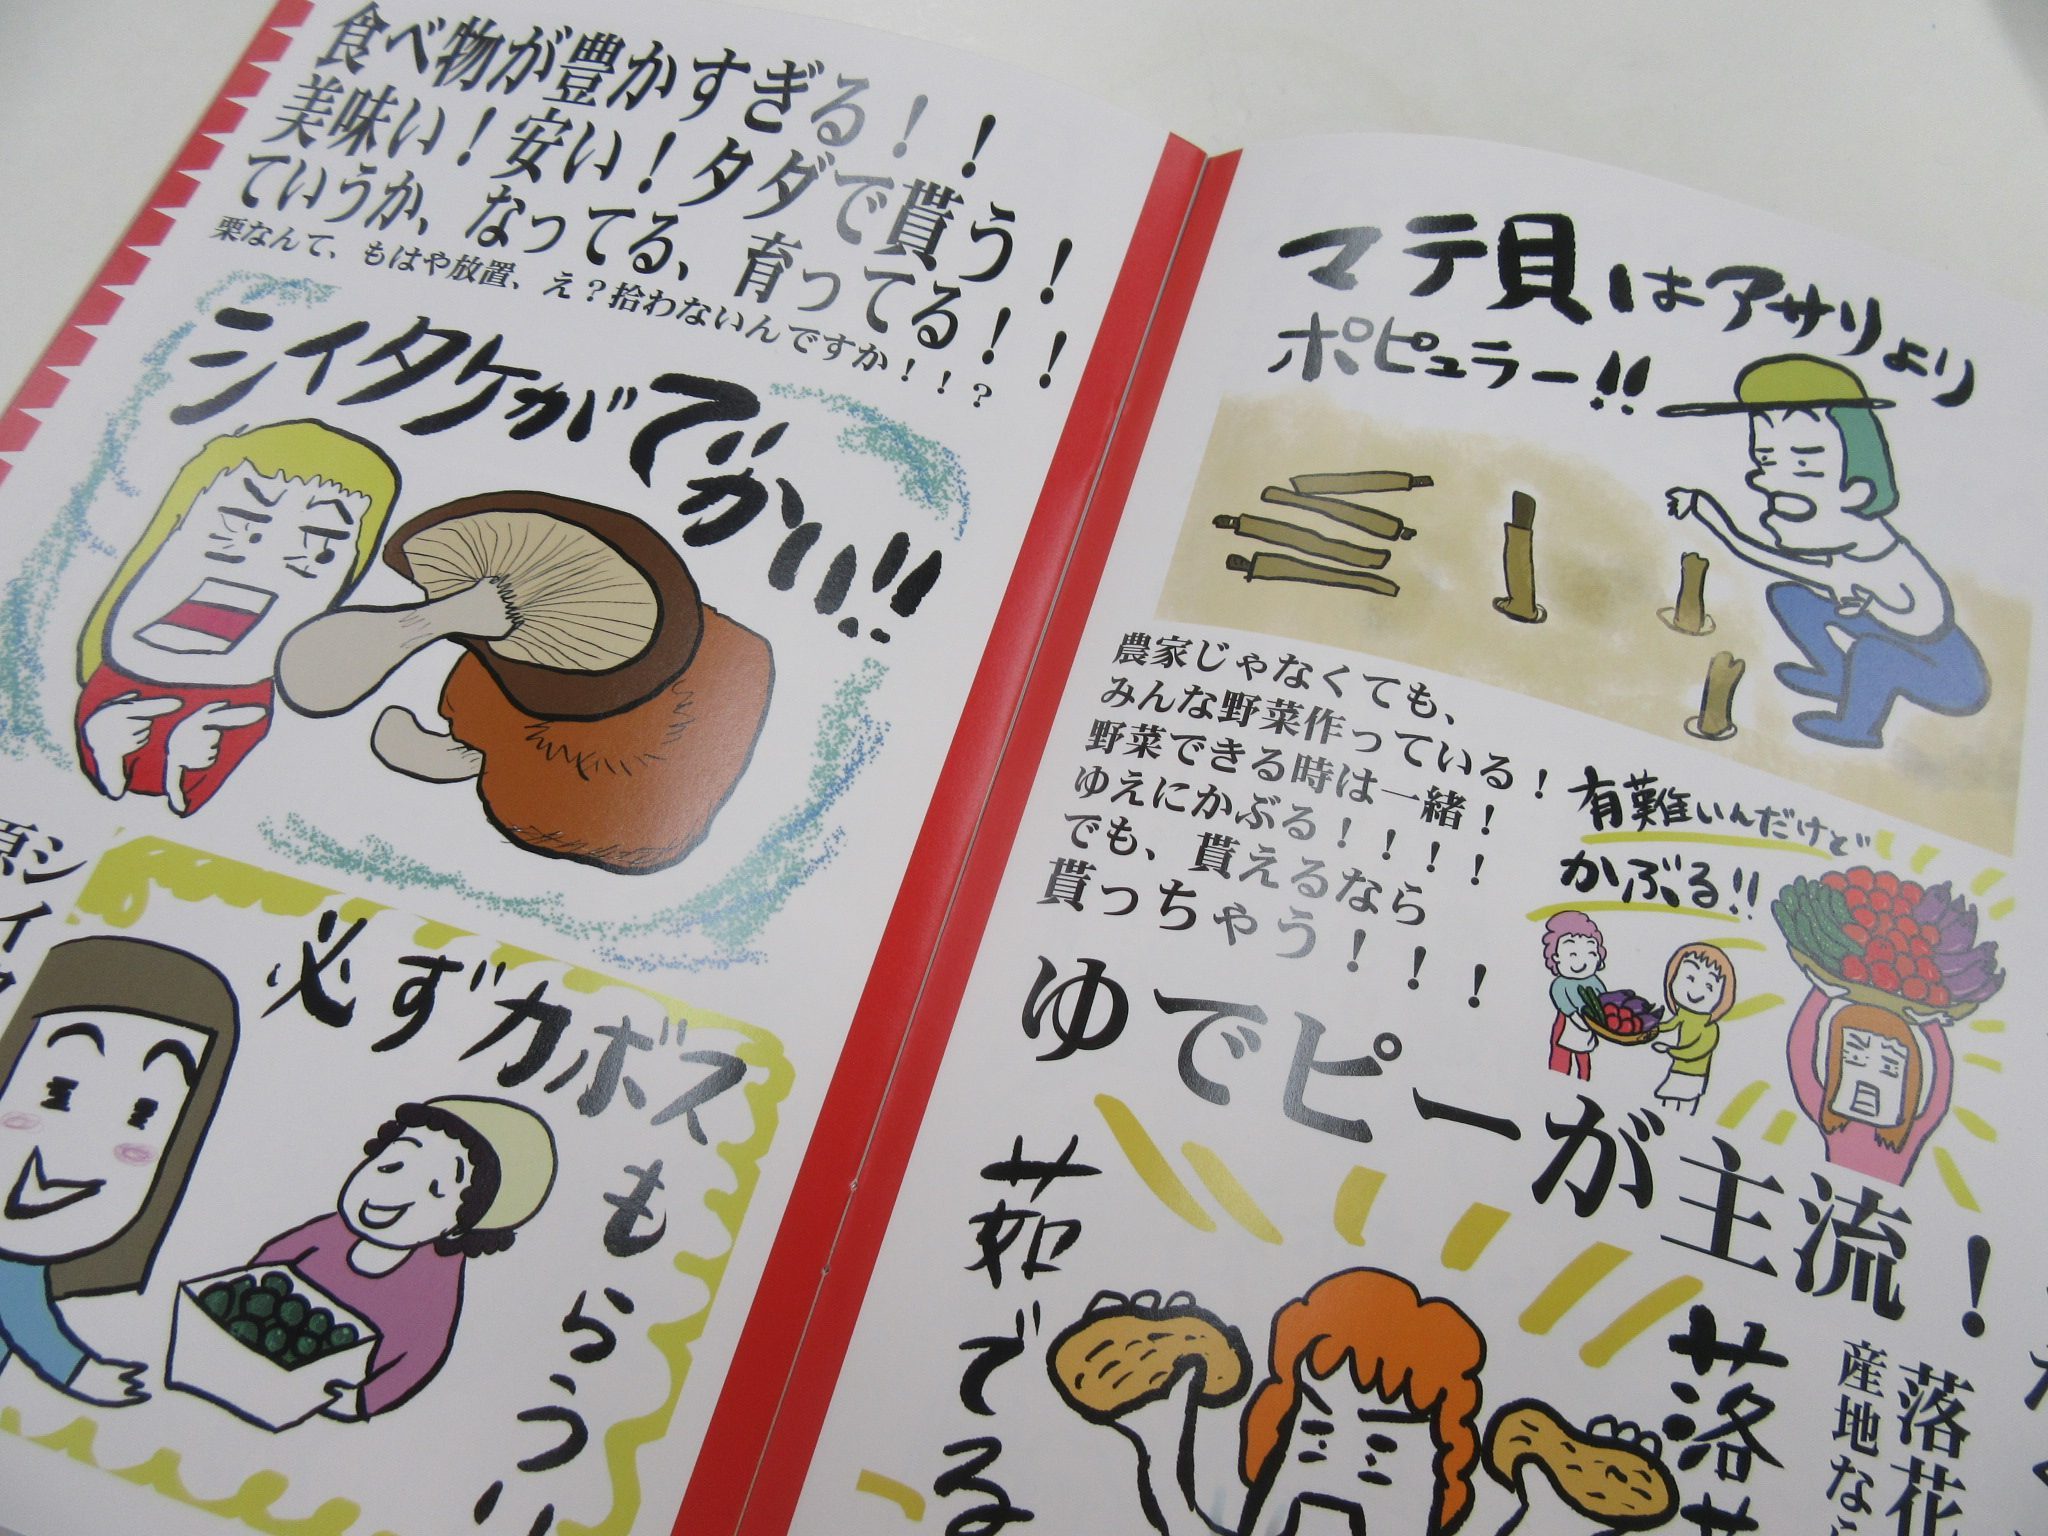 食べ物が豊かすぎる！！
美味い！安い！タダで貰う！
ていうか、なってる、育ってる！！
栗なんて、もはや放置、え？拾わないんですか！！？
シイタケがでかい!!
必ずカボスもらう!!
マテ貝はアサリより
ポピュラー!!
農家じゃなくても、
みんな野菜作っている！
野菜できる時は一緒！
ゆえにかぶる！！！！
でも、貰えるなら
貰っちゃう！！！
有難いんだけど
かぶる!!
ゆでピーが主流！
茹でる
落花
産地なら